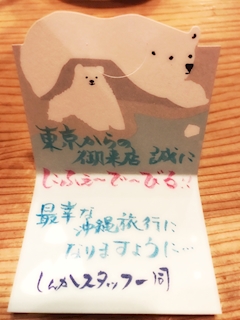 東京からの
御来店 誠に
じふぇ〜で〜びる:
最幸な
沖縄旅行に
なりますように…
しんかスタッフ一同